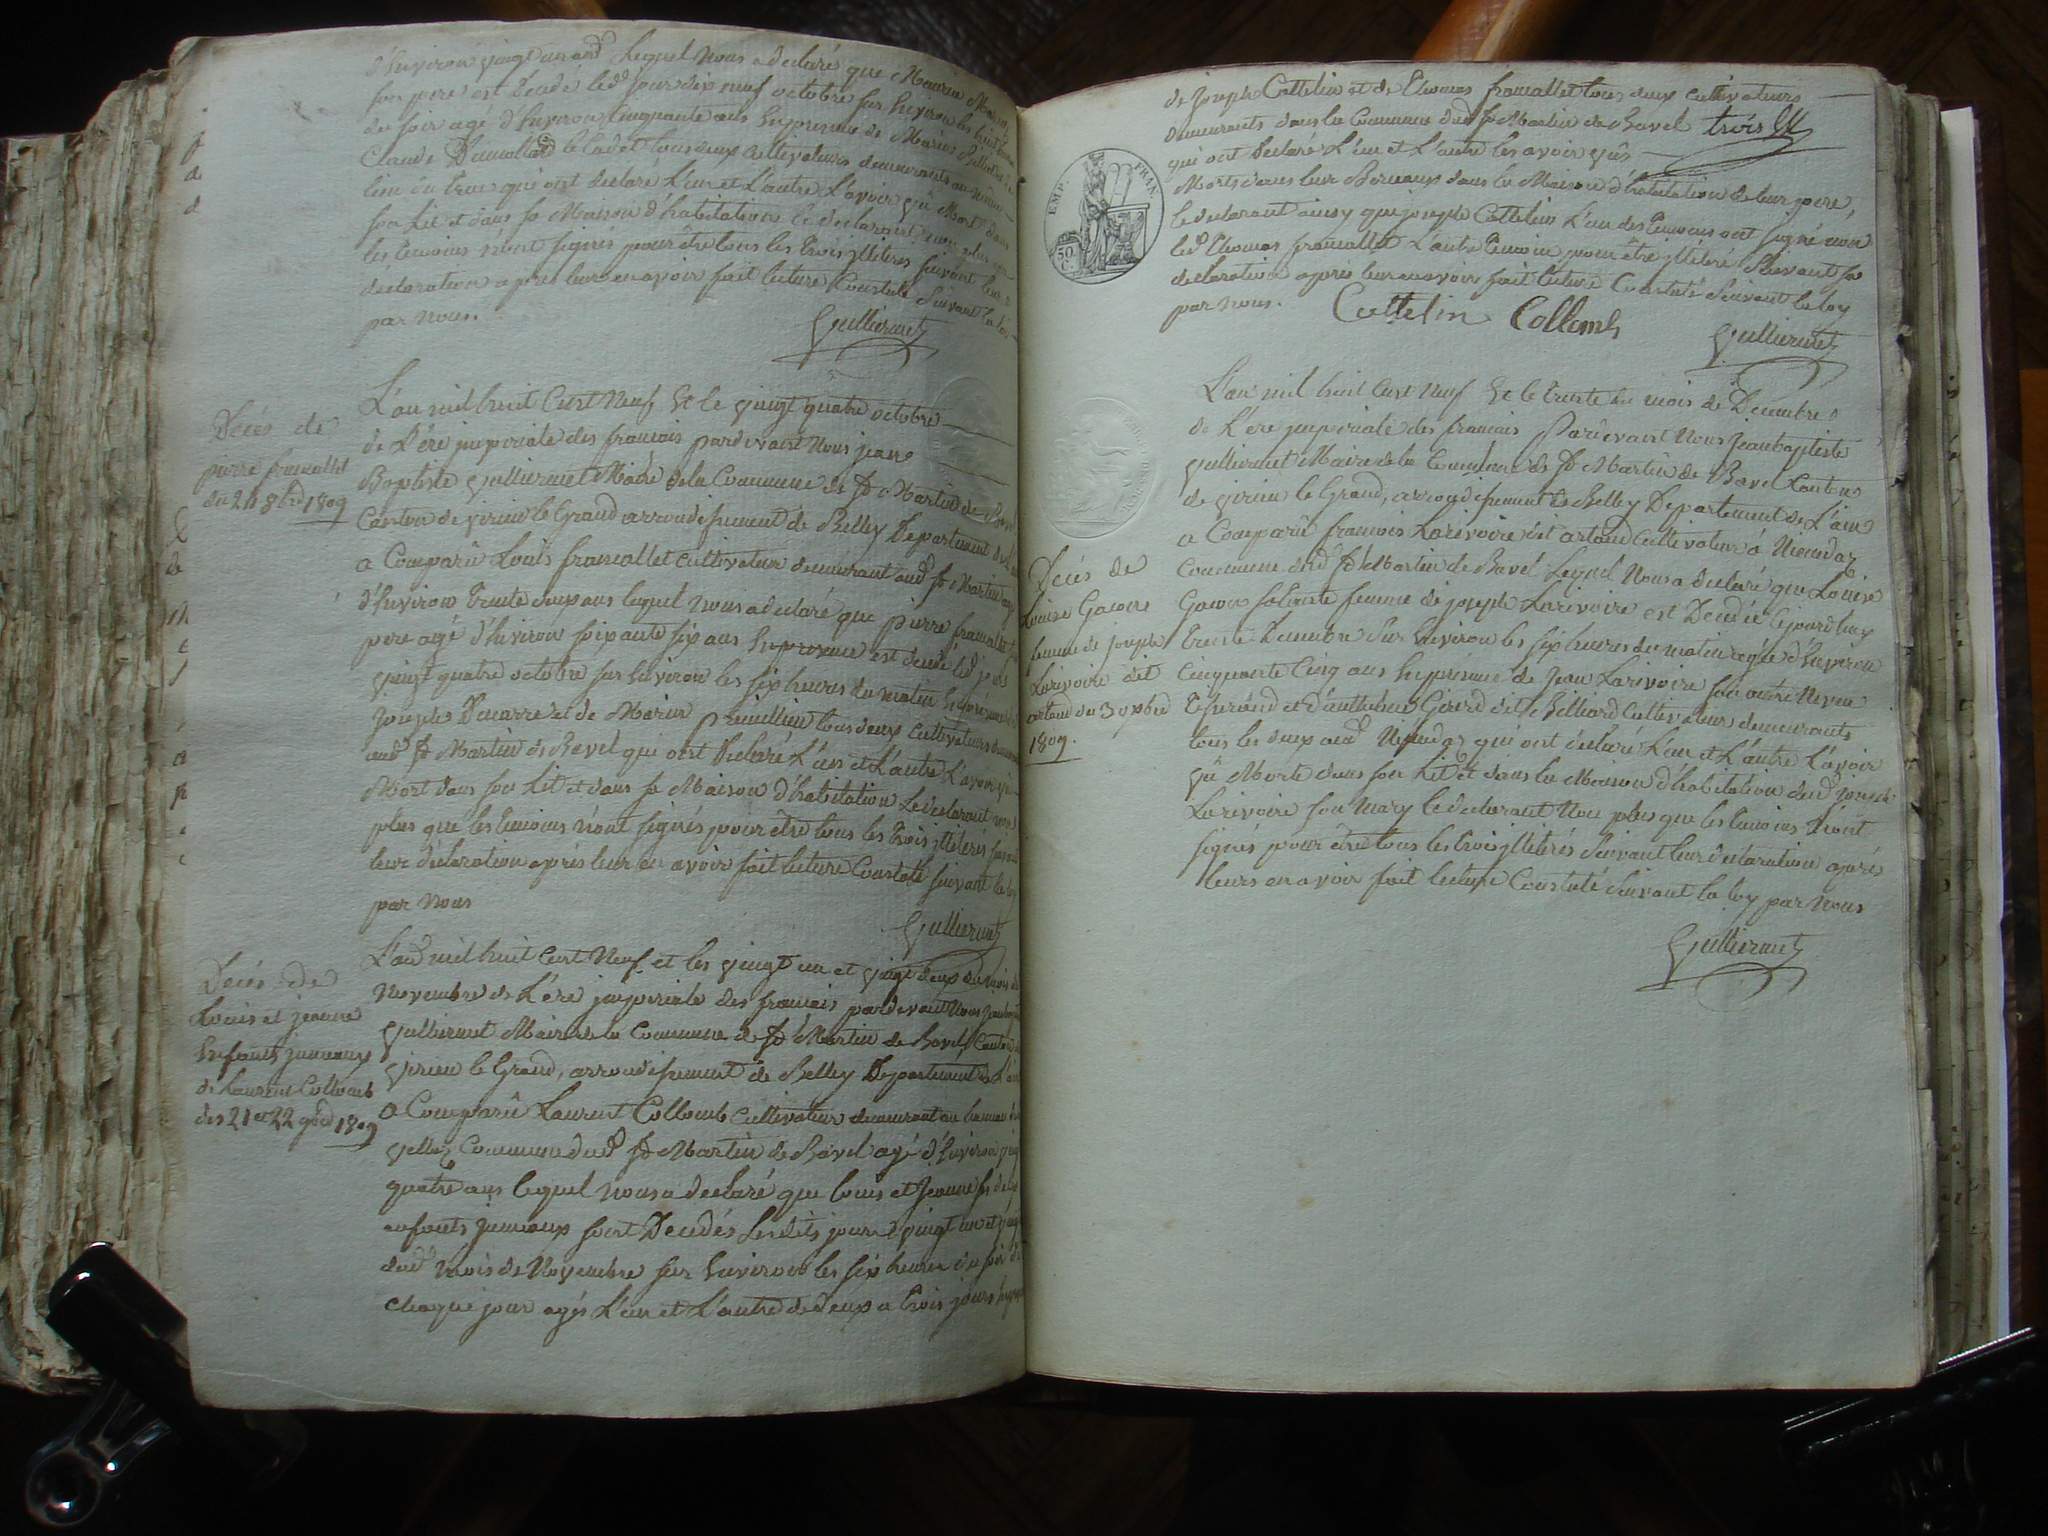 d'huviron vingt un ans lequel nous a declaré que
son pere est decedé led jour dix neuf octobre sur huviron les huit heures
du soir agé d'huviron cinquante ans En presence de
Claude le Cadet tous deux cultivateurs demeurants au même
lieu qui ont declaré L'un et L'autre L'avoir vû Mort dans
son Lit et dans sa Maison d'habitation le declarant non plus que
les temoins n'ont signés pour être tous les trois illiterés suivant leur
déclaration apres leur en avoir fait lecture Constaté suivant la loi
par nous.
Gulliermet
Décés de
pierre framallet
du 24 8bre 1809
L'an mil huit Cent Neuf Et le vingt quatre octobre
de L'ére imperiale des francais pardevant Nous jean
Baptiste Gulliermet Maire de la Commune de St Martin de Bavel
Canton de virieu le Grand arrondissement de Belley Departement de L'ain
a Comparû Louis framallet cultivateur demeurant aud St Martin agé
d'huviron trente ans lequel nous a declaré que pierre framallet son
pere agé d'huviron soixante six ans En presence est decedé led jour
vingt quatre octobre sur huviron les six heures du matin En présence de
Joseph et de tous deux cultivateurs demeurants
aud St Martin de Bavel qui ont Declaré L'un et L'autre L'avoir vû
Mort dans son Lit et dans sa Maison d'habitation Le declarant non
plus que les temoins n'ont signés pour être tous les trois illiterés suivant
leur déclaration aprés leur en avoir fait lecture Constaté suivant la loy
par nous
Gulliermet
Décés de
Louis et jeanne
Enfants jumeaux
de Laurent Collomb
des 21 et 22 9bre 1809
L'an mil huit Cent Neuf et les vingt un et vingt deux du mois de
Novembre de L'ére imperiale des francais pardevant Nous Jean baptiste
Gulliermet Maire de la Commune de St Martin de Bavel Canton de
virieu le Grand, arrondissement de Belley Departement de L'ain
a Comparû Laurent Collomb cultivateur demeurant au hameau de
Commune dud St Martin de Bavel agé d'huviron vingt
quatre ans lequel nous a declaré que Louis et Jeanne ses deux
enfants jumeaux sont Decedés Lesdits jours vingt un et vingt
dud mois de Novembre sur huviron les six heures du soir de
chaque jour agés L'un et L'autre de deux a trois jours En presence
de Joseph Cattelin et de Thomas framallet tous deux cultivateurs
demeurants dans la Commune dud St Martin de Bavel trois
qui ont Declaré L'un et L'autre les avoir vûs
Morts dans leur Berceaux dans la Maison d'habitation de leur pere,
le declarant ainsy que joseph Cattelin L'un des temoins ont signé non
led Thomas framallet L'autre temoin pour être illiteré Suivant sa
declaration aprés leur en avoir fait lecture Constaté Suivant la loy
par nous.
Cattelin Collomb
Gulliermet
EMP. FRAN.
50 C.
Décés de
Louise Gacon
femme de joseph
Larivoire dit
artaud du 30 Xbre
1809.
L'an mil huit Cent Neuf Et le trente du mois de Decembre
de L'ere imperiale des francais Pardevant Nous Jean baptiste
Gulliermet Maire de la Commune de St Martin de Bavel Canton
de virieu le Grand, arrondissement de Belley Departement de L'ain
a Comparû francois Larivoire dit artaud Cultivateur á
Commune dud St Martin de Bavel Lequel Nous a declaré que Louise
Gacon femme de joseph Larivoire est Decedée cejourdhuy
trente Decembre Sur huviron les six heures du matin agée d'huviron
Cinquante Cinq ans En presence de Jean Larivoire son autre Neveu
et d'anthelme Girerd dit Billiard Cultivateurs demeurants
tous les deux aud qui ont declaré L'un et L'autre L'avoir
vû Morte dans son Lit et dans la Maison d'habitation dud joseph
Larivoire son Mary le declarant Non plus que les temoins n'ont
signés pour être tous les trois illiterés Suivant leur declaration aprés
leurs en avoir fait lecture Constaté Suivant la loy par Nous
Gulliermet